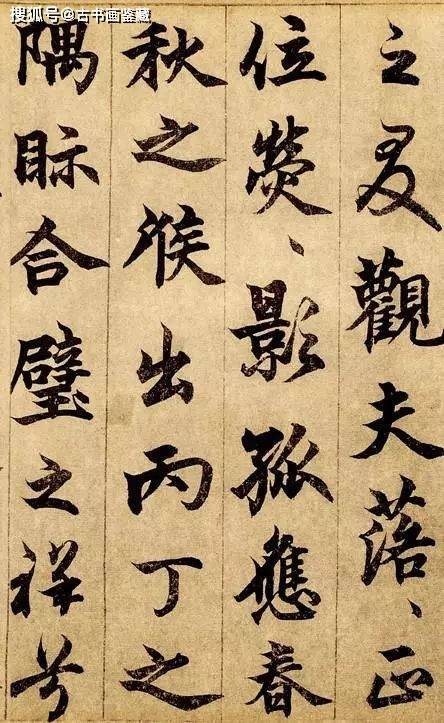 搜狐号@古书画鉴藏
之觀夫落、正
位熒、影孤應春
秋之候出丙丁之
隅眎合璧之祥兮